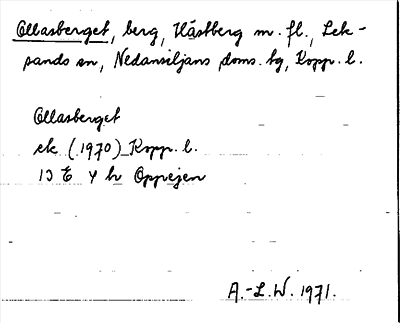 Ollasberget, berg, Hästberg m. fl., Lek-
sands sn, Nedansiljans doms. hg, Kopp. l.
Ollasberget
ek (1970) Kopp. l.
13 E 4 h Opprejen
A.-L.W. 1971.